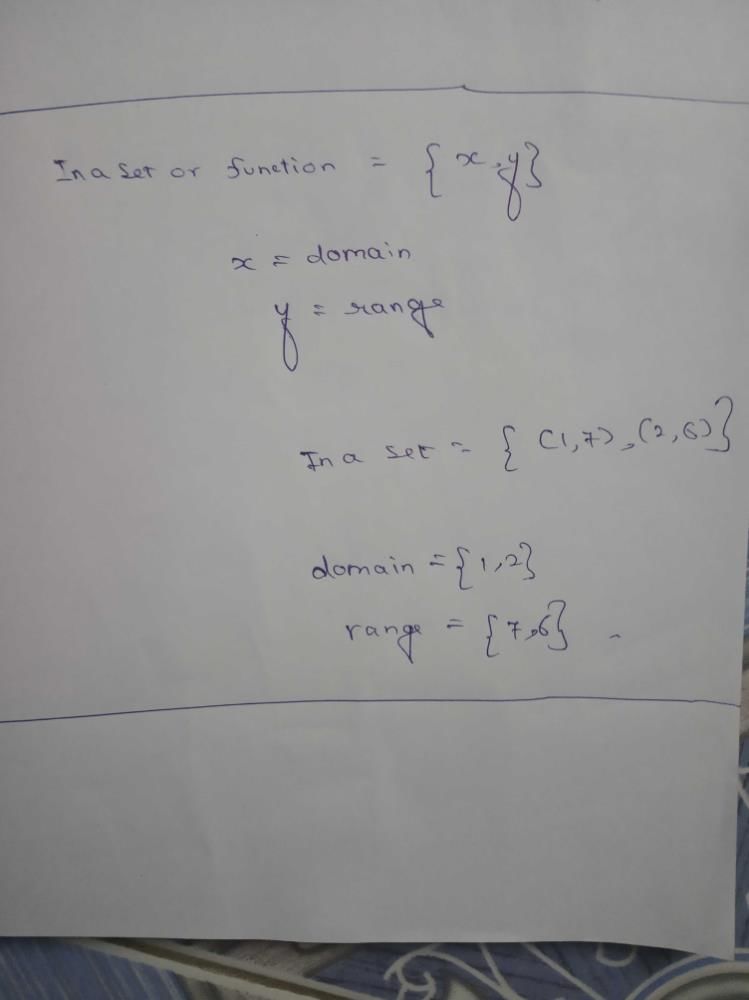 In a set or function = { x, y}
x = domain
y = range
In a set = { (1,7), (2,6)}
domain = {1,2}
range = {7,6}